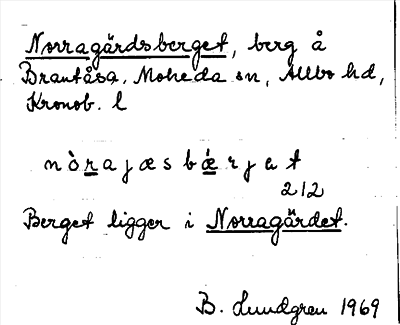 Norragärdsberget, berg å
Brantåsa, Moheda sn, Allbo hd,
Kronob. l
nòrajæsbǽrjet
212
Berget ligger i Norragärdet.
B. Lundgren 1969